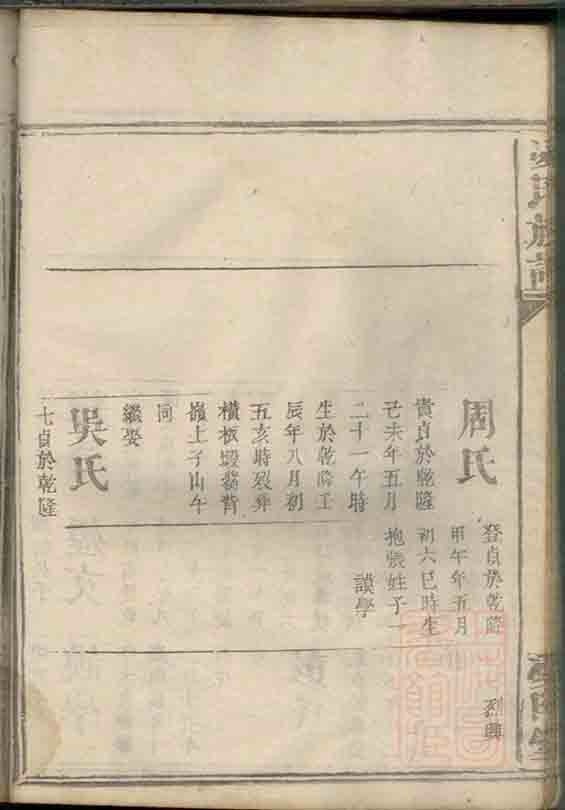 氏族譜
周氏
貴貞於乾隆
己未年五月
二十一午時
生於乾隆壬
辰年八月初
五亥時歿葬
橫板塅翁背
嶺上子山午
向
繼娶
吳氏
七貞於乾隆
登貞於乾隆
甲午年五月
初六巳時生
抱張姓子一
謨學
烈興